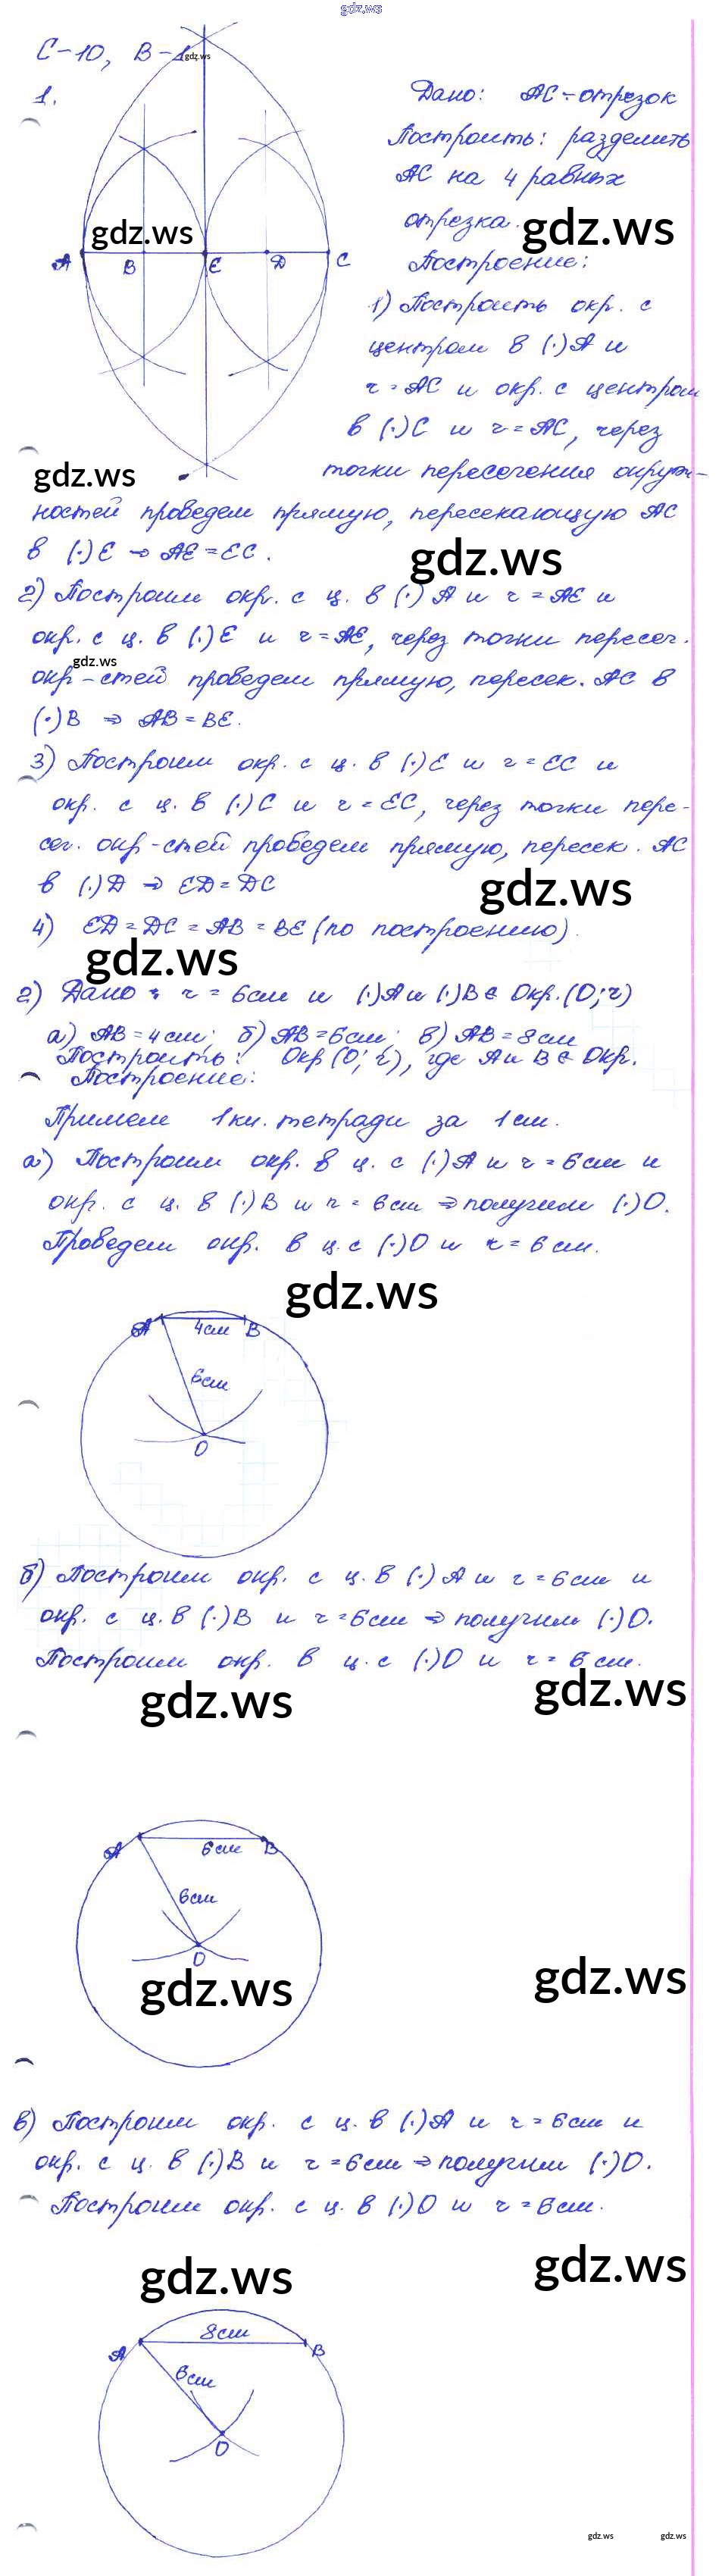 gdz.ws
С-10, В-1
gdz.ws
1.
Дано: АС - отрезок
Построить: разделить
АС на 4 равных
отрезка.
gdz.ws
gdz.ws
A B E D C
Построение:
1) Построить окр. с
центром в (·)А и
r = АС и окр. с центром
в (·)С и r = АС, через
точки пересечения окруж-
gdz.ws
ностей проведем прямую, пересекающую АС
в (·)Е ⇒ АЕ = ЕС.
gdz.ws
2) Построим окр. с ц. в (·) А и r = АЕ и
окр. с ц. в (·)Е и r = АЕ, через точки пересеч.
gdz.ws
окр-стей проведем прямую, пересек. АС в
(·)В ⇒ АВ = ВЕ.
3) Построим окр. с ц. в (·)Е и r = ЕС и
окр. с ц. в (·)С и r = ЕС, через точки пере-
сеч. окр-стей проведем прямую, пересек. АС
в (·)Д ⇒ ЕД = ДС
gdz.ws
4) ЕД = ДС = АВ = ВЕ (по построению).
gdz.ws
2) Дано: r = 6см и (·)А и (·)В ∈ Окр.(О; r)
а) АВ = 4см; б) АВ = 6см; в) АВ = 8см
Построить: Окр(О; r), где А и В ∈ Окр.
Построение:
Примем 1кл. тетради за 1см.
а) Построим окр. в ц. с (·)А и r = 6см и
окр. с ц. в (·)В и r = 6см ⇒ получим (·)О.
Проведем окр. в ц. с (·)О и r = 6см.
gdz.ws
A 4см B
6см
O
б) Построим окр. с ц. в (·)А и r = 6см и
окр. с ц. в (·)В и r = 6см ⇒ получим (·)О.
Построим окр. в ц. с (·)О и r = 6см.
gdz.ws
gdz.ws
A 6см B
6см
O
gdz.ws
gdz.ws
в) Построим окр. с ц. в (·)А и r = 6см и
окр. с ц. в (·)В и r = 6см ⇒ получим (·)О.
Построим окр. с ц. в (·)О и r = 6см.
gdz.ws
gdz.ws
A 8см B
6см
O
gdz.ws gdz.ws